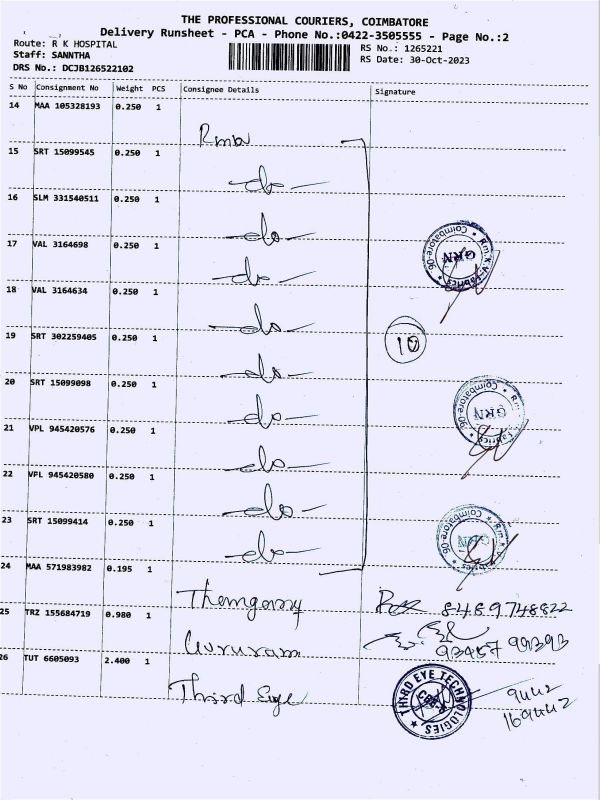 THE PROFESSIONAL COURIERS, COIMBATORE
Delivery Runsheet - PCA - Phone No.:0422-3505555 - Page No.:2
Route: R K HOSPITAL
RS No.: 1265221
Staff: SANNTHA
RS Date: 30-Oct-2023
DRS No.: DCJB126522102
S No Consignment No Weight PCS Consignee Details Signature
14 MAA 105328193 0.250 1
15 SRT 15099545 0.250 1
do
16 SLM 331540511 0.250 1
do
Rm.K.V. Fabrics * Coimbatore-06 *
GRN
17 VAL 3164698 0.250 1
do
18 VAL 3164634 0.250 1
do
10
19 SRT 302259405 0.250 1
do
20 SRT 15099098 0.250 1
do
Coimbatore-06
GRN
Fabrics
21 VPL 945420576 0.250 1
do
22 VPL 945420580 0.250 1
do
23 SRT 15099414 0.250 1
do
Coimbatore-06
GRN
24 MAA 571983982 0.195 1
8489748822
25 TRZ 155684719 0.980 1
Gururam
26 TUT 6605093 2.400 1
Third Eye
THIRD EYE TECHNOLOGIES
9442
169442